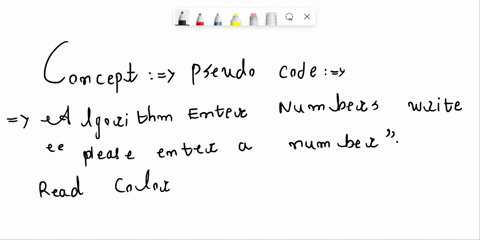 Concept :=> Pseudo code :=>
=> Algorithm Enter Numbers write
"please enter a number".
Read Color